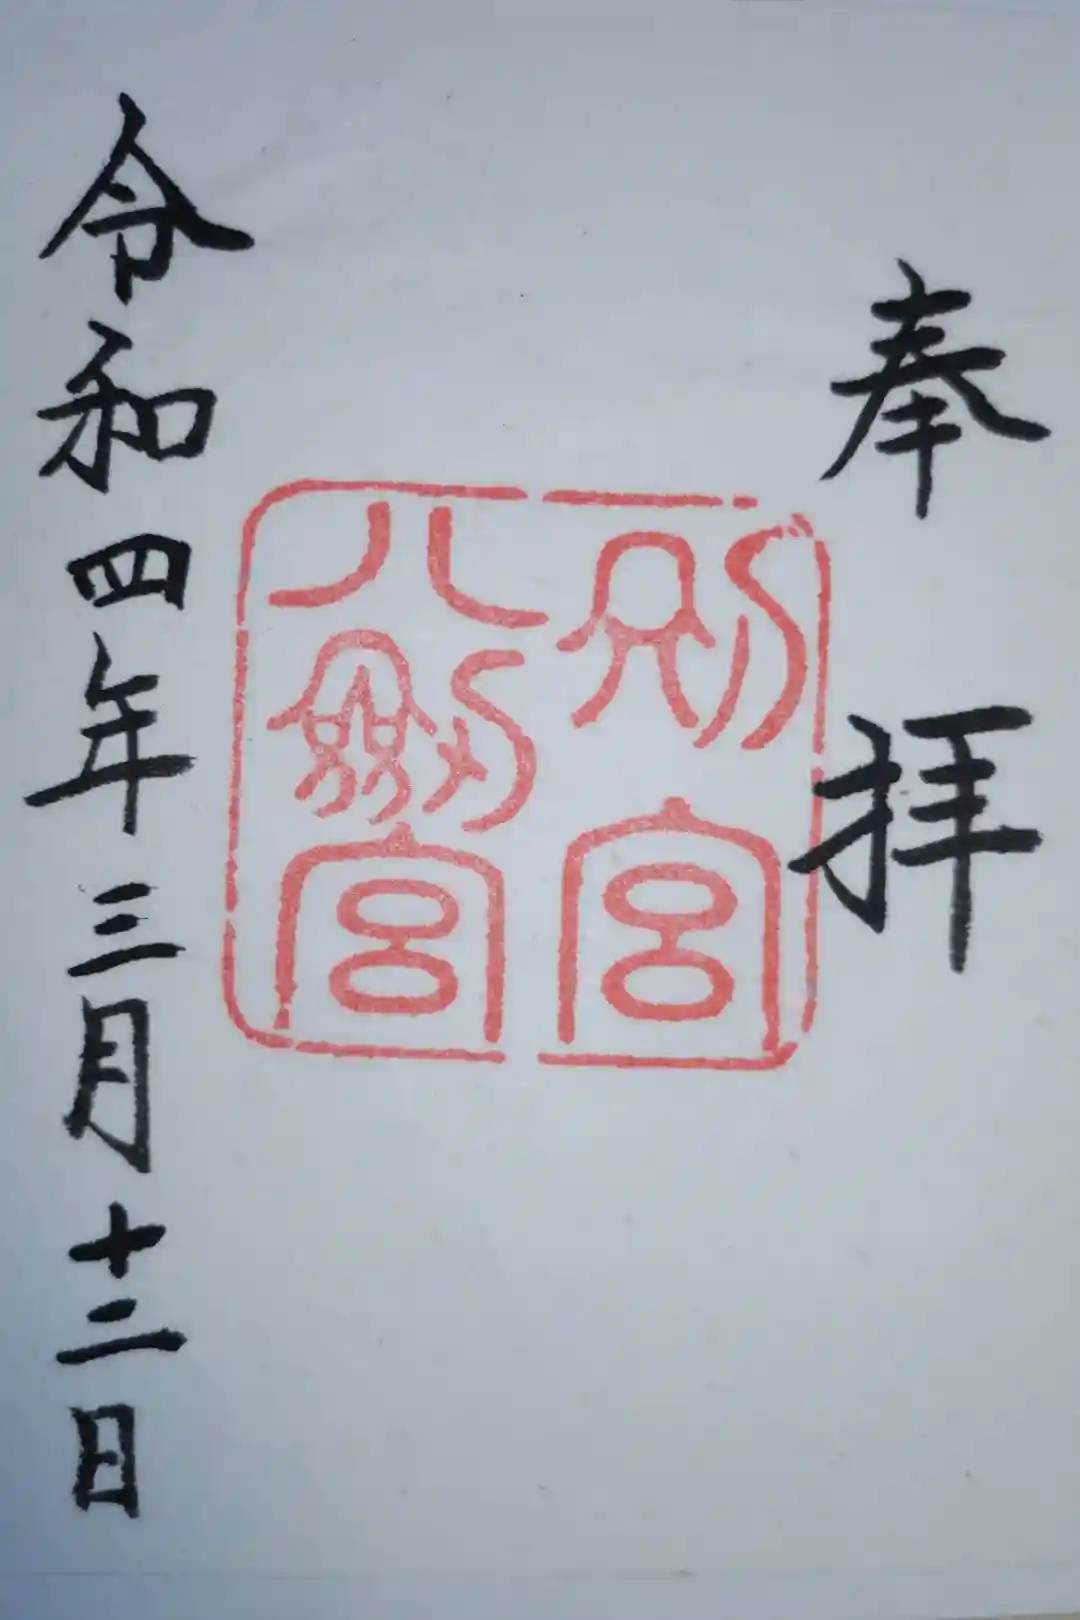 奉拝
別宮
八劔宮
令和四年三月十二日